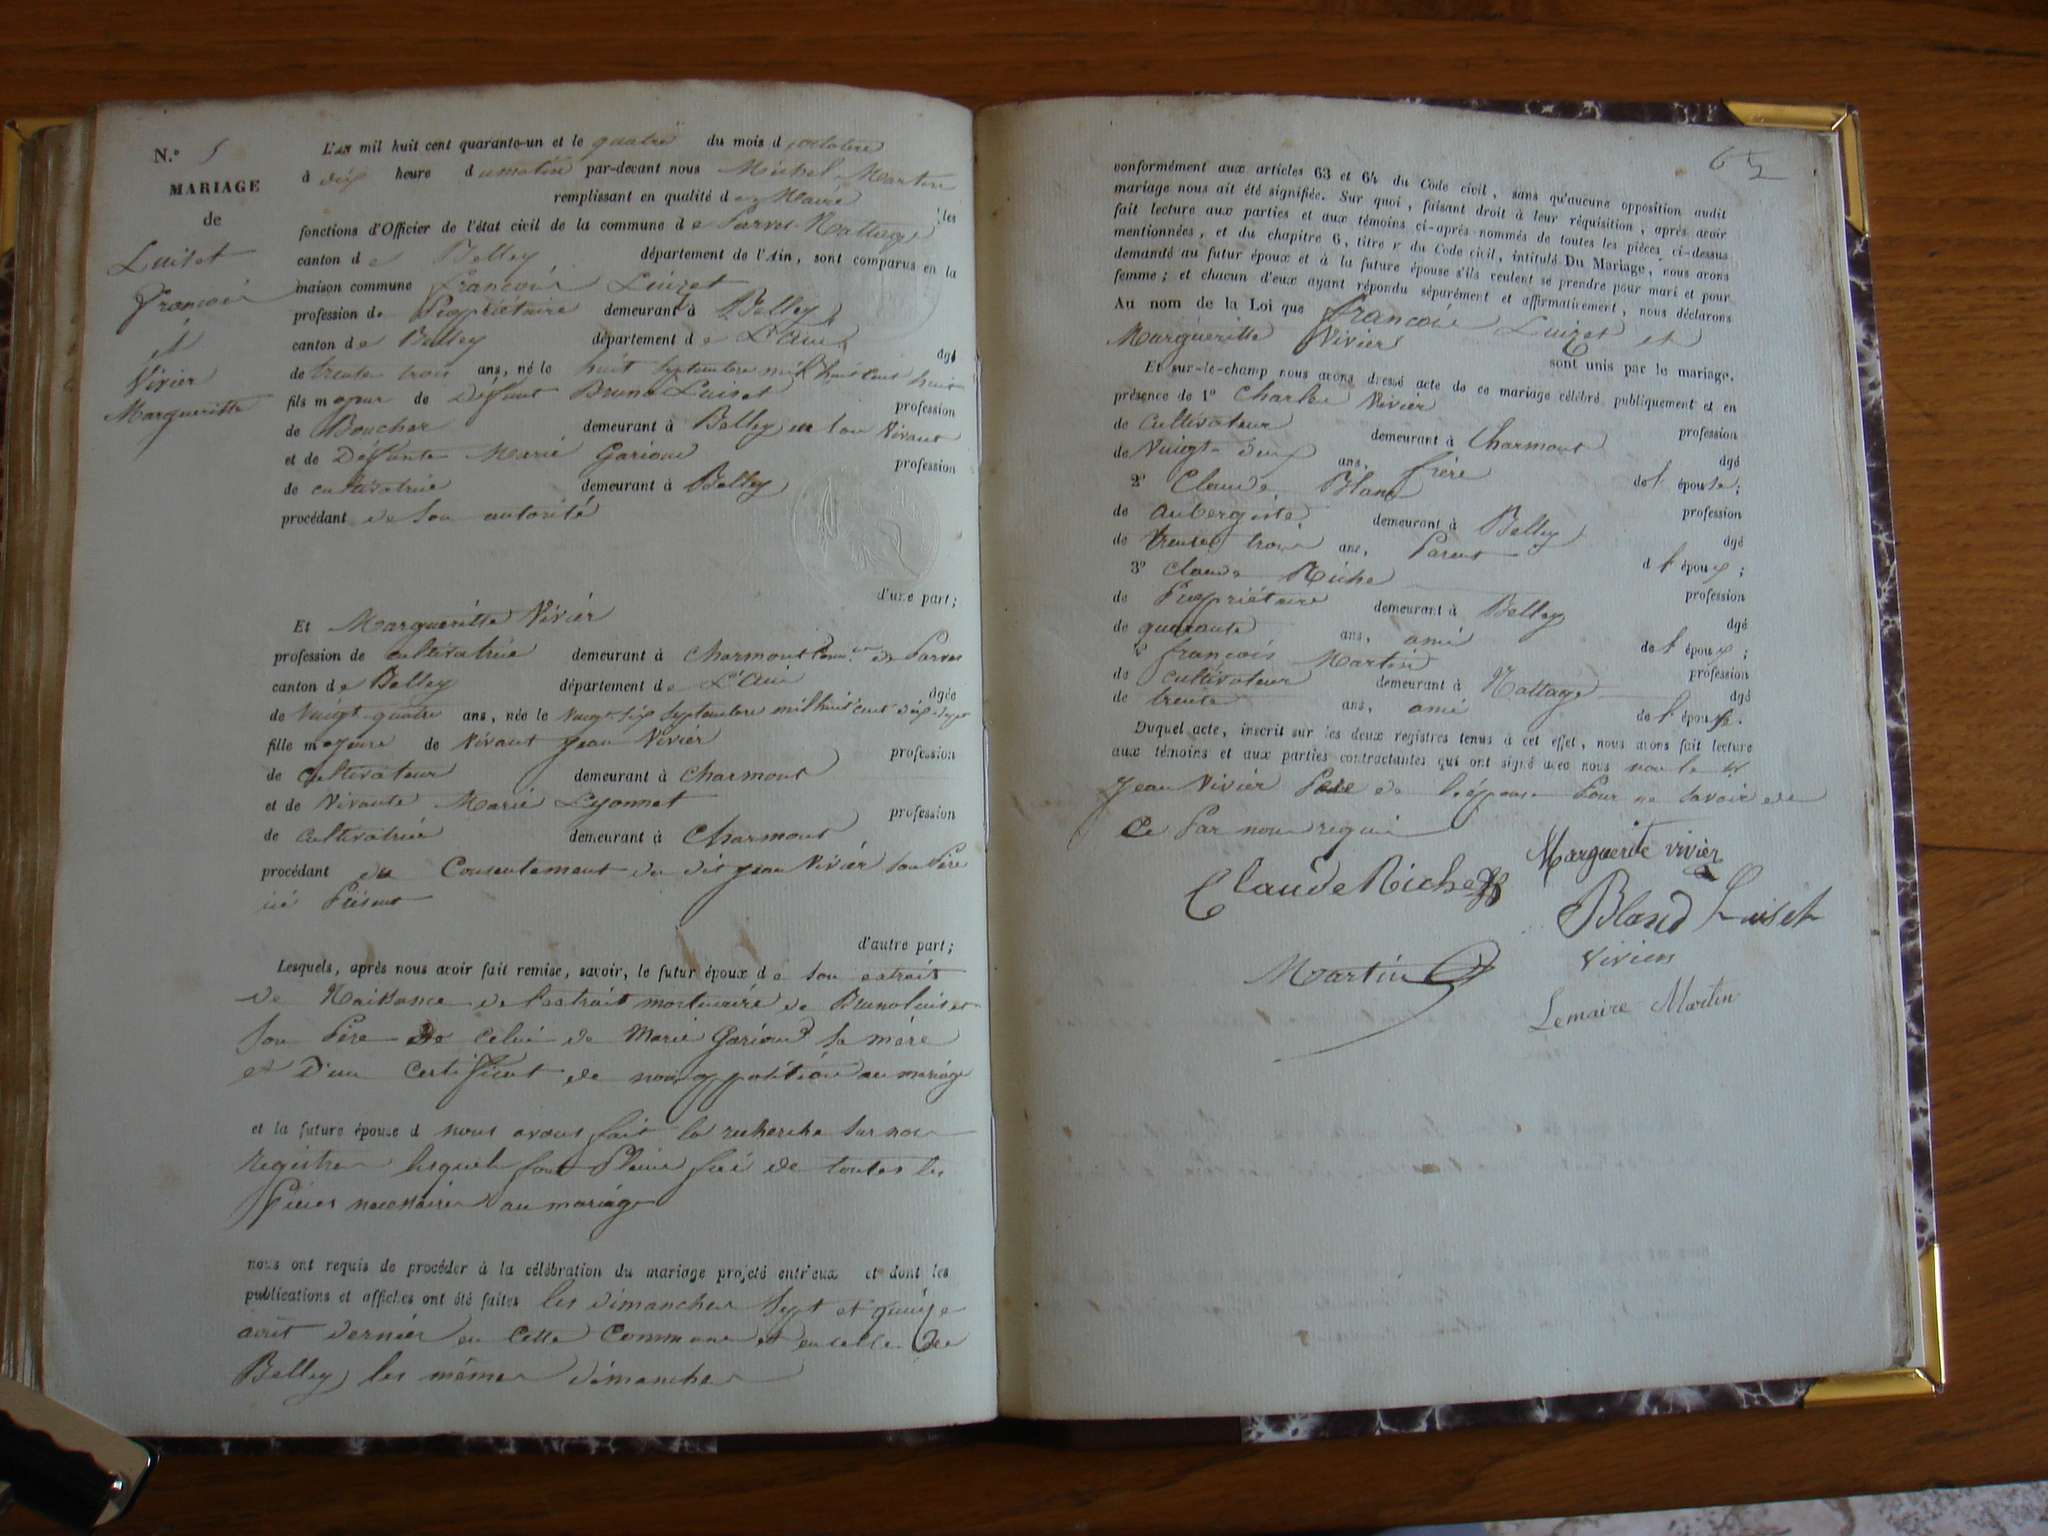 N.° 5
MARIAGE
de
Luiset
François
et
Vivier
Margueritte
L'an mil huit cent quarante-un et le quatre du mois d'octobre
à dix heure du matin par-devant nous Michel Martin
remplissant en qualité de Maire les
fonctions d'Officier de l'état civil de la commune de Parves-Nattage
canton de Belley département de l'Ain, sont comparus en la
maison commune François Luizet
profession de Propriétaire demeurant à Belley
canton de Belley département de L'Ain
âgé
de trente trois ans, né le huit septembre mil huit cent huit
fils majeur de Défunt Bruno Luiset
profession
de Boucher demeurant à Belley en son vivant
et de Défunte Marie Gariod
profession
de cultivatrice demeurant à Belley
procédant de son autorité
d'une part;
Et Margueritte Vivier
profession de cultivatrice demeurant à Charmont Comm.ne de Parves
canton de Belley département de L'Ain
âgée
de vingt-quatre ans, née le vingt-six septembre mil huit cent dix-sept
fille majeure de vivant Jean Vivier
profession
de cultivateur demeurant à Charmont
et de vivante Marie Lyonnet
profession
de cultivatrice demeurant à Charmont
procédant du Consentement du dit Jean Vivier son Père
ici Présent
d'autre part;
Lesquels, après nous avoir fait remise, savoir, le futur époux de son extrait
de Naissance de l'extrait mortuaire de Bruno luiset
son Père de celui de Marie Gariod sa mère
et D'un certificat de non opposition au mariage
et la future épouse d nous avons fait la recherche sur nos
registres lesquels font Pleine foi de toutes les
Pièces nécessaires au mariage
nous ont requis de procéder à la célébration du mariage projeté entr'eux et dont les
publications et affiches ont été faites les dimanches sept et quinze
août dernier en cette Commune et en celle de
Belley les mêmes dimanches
conformément aux articles 63 et 64 du Code civil, sans qu'aucune opposition audit
mariage nous ait été signifiée. Sur quoi, faisant droit à leur réquisition, après avoir
fait lecture aux parties et aux témoins ci-après nommés de toutes les pièces ci-dessus
mentionnées, et du chapitre 6, titre v du Code civil, intitulé Du Mariage, nous avons
demandé au futur époux et à la future épouse s'ils veulent se prendre pour mari et pour
femme; et chacun d'eux ayant répondu séparément et affirmativement, nous déclarons
Au nom de la Loi que François Luizet et
Margueritte Vivier
sont unis par le mariage.
Et sur-le-champ nous avons dressé acte de ce mariage célébré publiquement et en
présence de 1° Charles Vivier
profession
de cultivateur demeurant à Charmont
âgé
de vingt-deux ans, frère de l'épouse;
2° Claude Bland
profession
de aubergiste demeurant à Belley
âgé
de trente trois ans, Parent d l'époux;
3° Claude Riche
profession
de Propriétaire demeurant à Belley
âgé
de quarante ans, ami de l'époux;
4° François Martin
profession
de cultivateur demeurant à Nattage
âgé
de trente ans, ami de l'épouse.
Duquel acte, inscrit sur les deux registres tenus à cet effet, nous avons fait lecture
aux témoins et aux parties contractantes qui ont signé avec nous non le Sr
Jean Vivier Père de l'épouse Pour ne savoir de
Ce Par nous requi
Marguerite vivier
Claude Riche
Bland Luiset
Martin
Vivier
Lemaire Martin